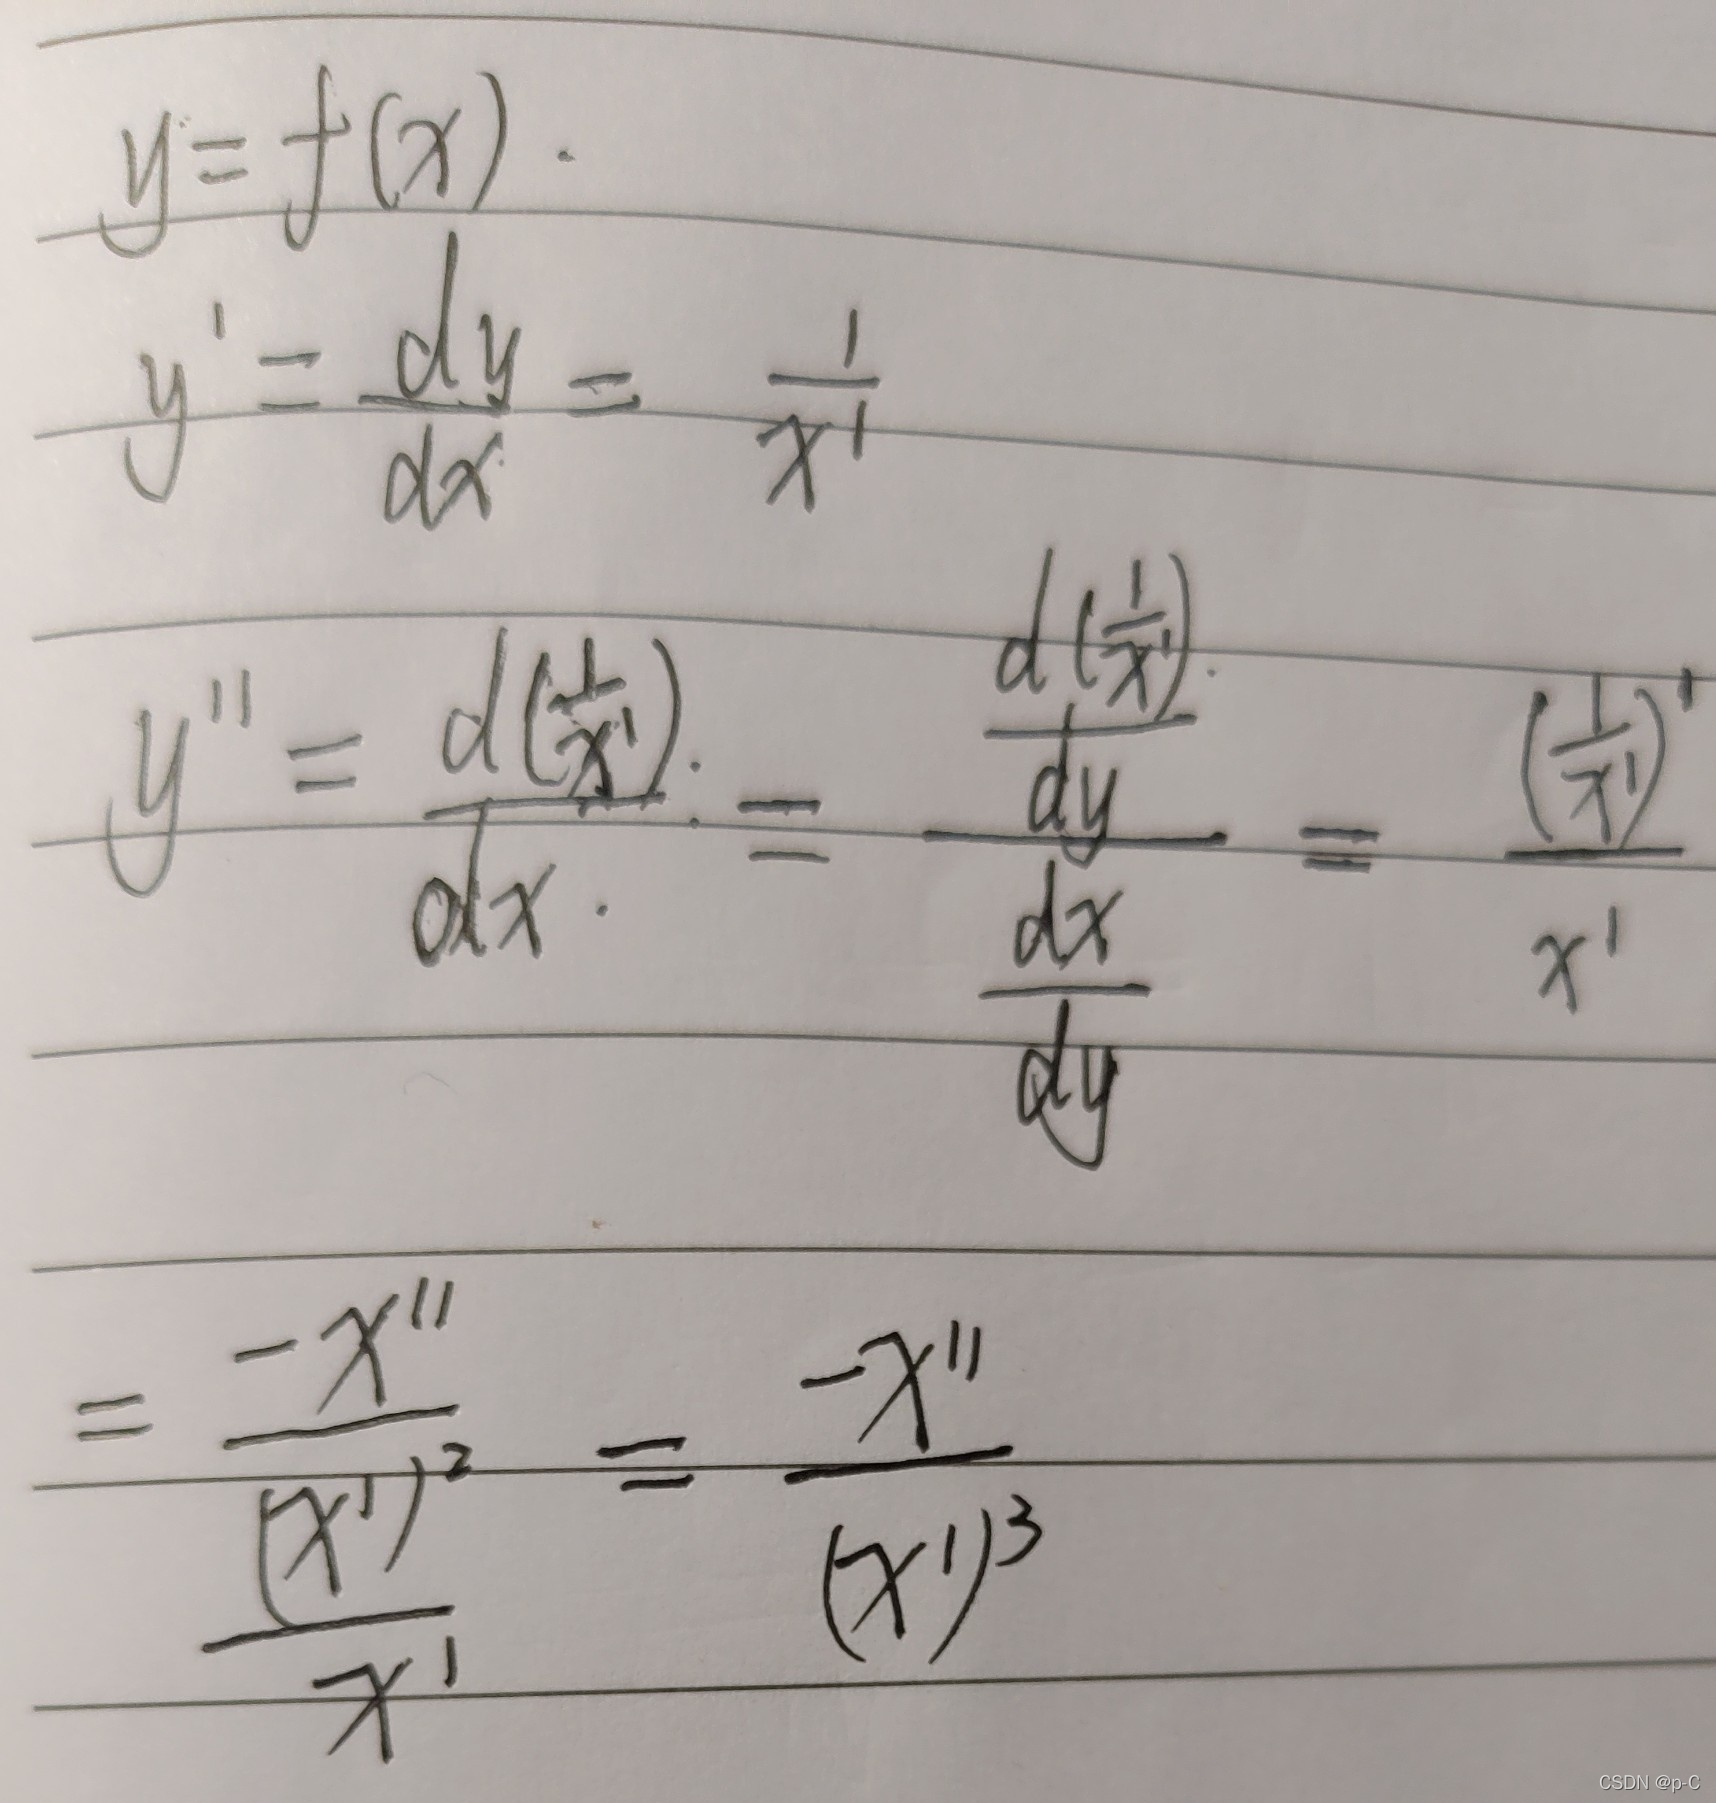 y = f(x).
y' = \frac{dy}{dx} = \frac{1}{x'}
y'' = \frac{d(\frac{1}{x'})}{dx} = \frac{\frac{d(\frac{1}{x'})}{dy}}{\frac{dx}{dy}} = \frac{(\frac{1}{x'})'}{x'}
= \frac{\frac{-x''}{(x')^2}}{x'} = \frac{-x''}{(x')^3}
CSDN @p-C